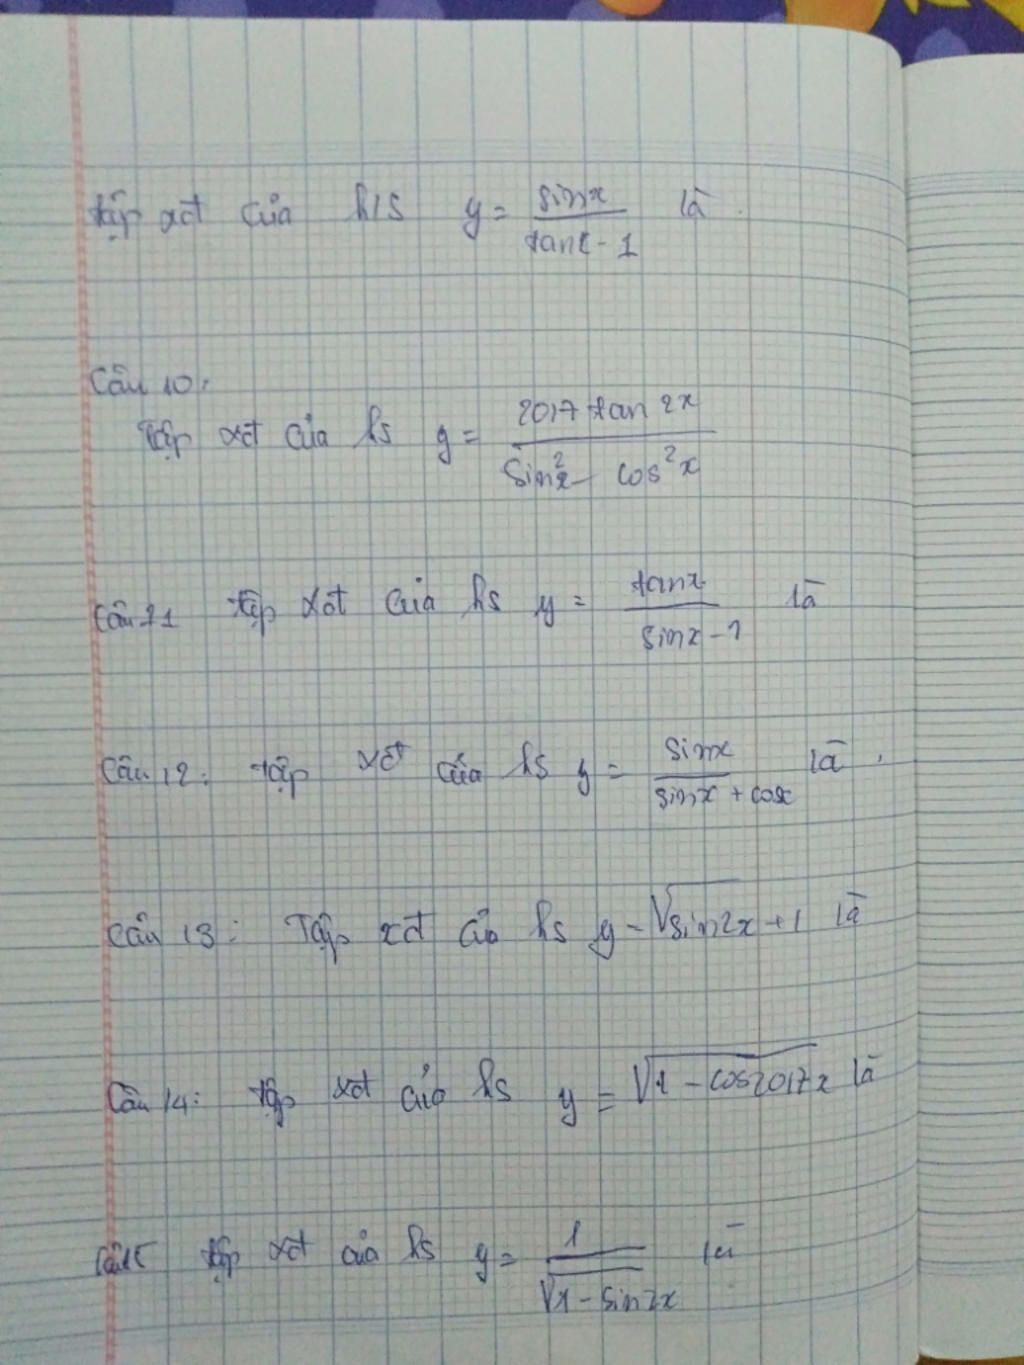 tập xđ của h/s y = sinx / tanx - 1 là.
Câu 10:
Tập xđ của hs y = 2017 tan 2x / sin²x - cos²x
Câu 11 tập xđ của hs y = tanx / sinx - 1 là
Câu 12: tập xđ của hs y = sinx / sinx + cosx là.
Câu 13: Tập xđ của hs y = √sin2x + 1 là
Câu 14: tập xđ của hs y = √1 - cos2017x là
Câu 15 tập xđ của hs y = 1 / √1 - sin2x là